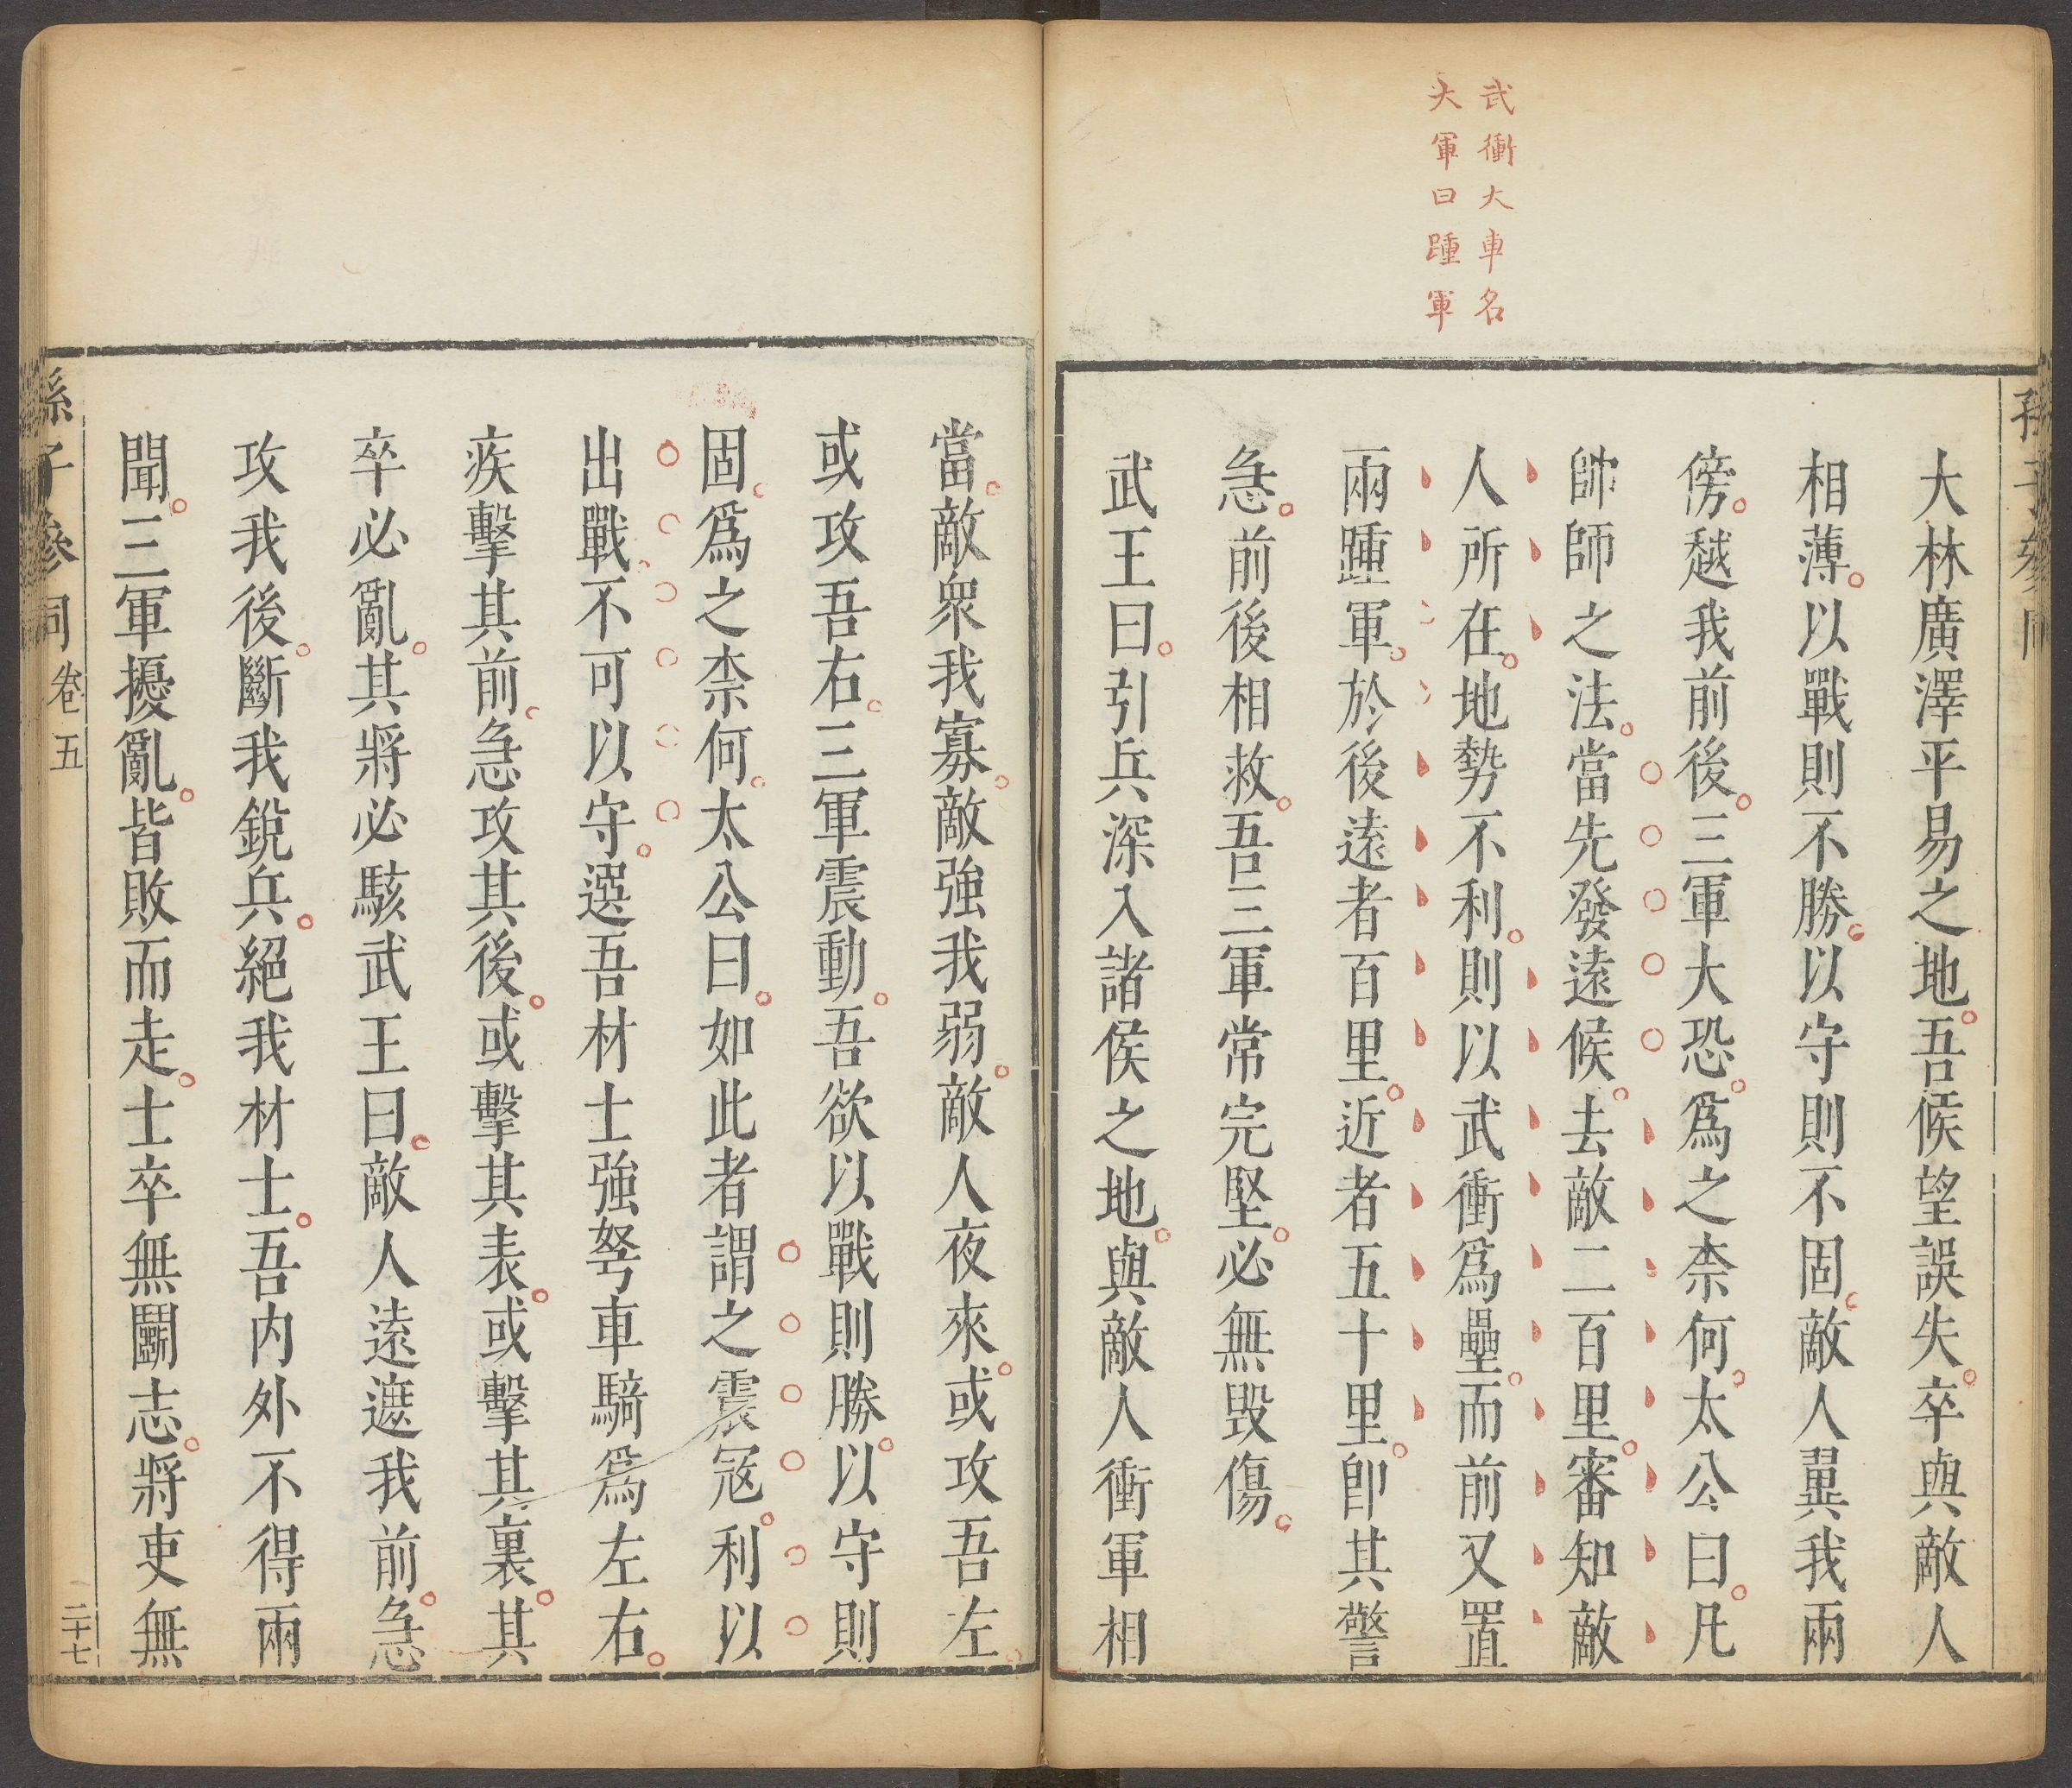 武衝大車名
大軍曰踵軍
大林廣澤平易之地。吾候望誤失。卒與敵人
相薄。以戰則不勝。以守則不固。敵人翼我兩
傍。越我前後。三軍大恐。爲之柰何。太公曰。凡
帥師之法。當先發遠候。去敵二百里。審知敵
人所在。地勢不利。則以武衝爲壘。而前又置
兩踵軍。於後遠者百里。近者五十里。卽其警
急。前後相救。吾三軍常完堅。必無毀傷。
武王曰。引兵深入諸侯之地。與敵人衝軍相
當。敵衆我寡。敵強我弱。敵人夜來。或攻吾左。
或攻吾右。三軍震動。吾欲以戰則勝。以守則
固。爲之柰何。太公曰。如此者謂之震寇。利以
出戰。不可以守。選吾材士強弩車騎爲左右。
疾擊其前。急攻其後。或擊其表。或擊其裏。其
卒必亂。其將必駭武王曰。敵人遠遮我前。急
攻我後。斷我銳兵。絕我材士。吾内外不得兩
聞。三軍擾亂。皆敗而走。士卒無鬬志。將吏無
孫子參同 卷五
二十七